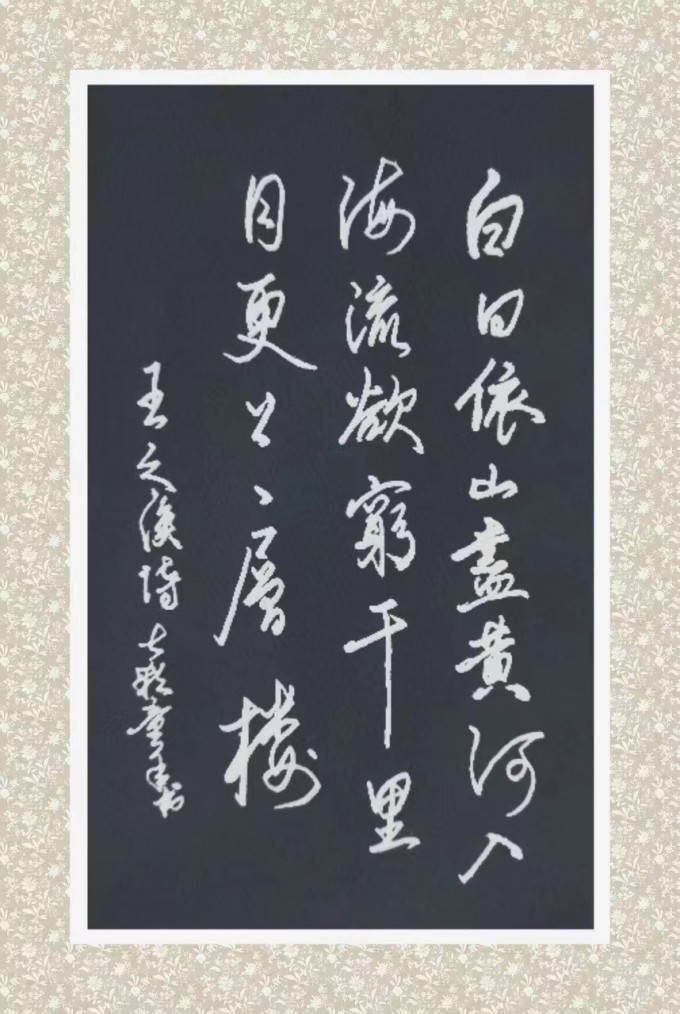 白日依山盡黄河入
海流欲窮千里
目更上一層樓
王之渙詩